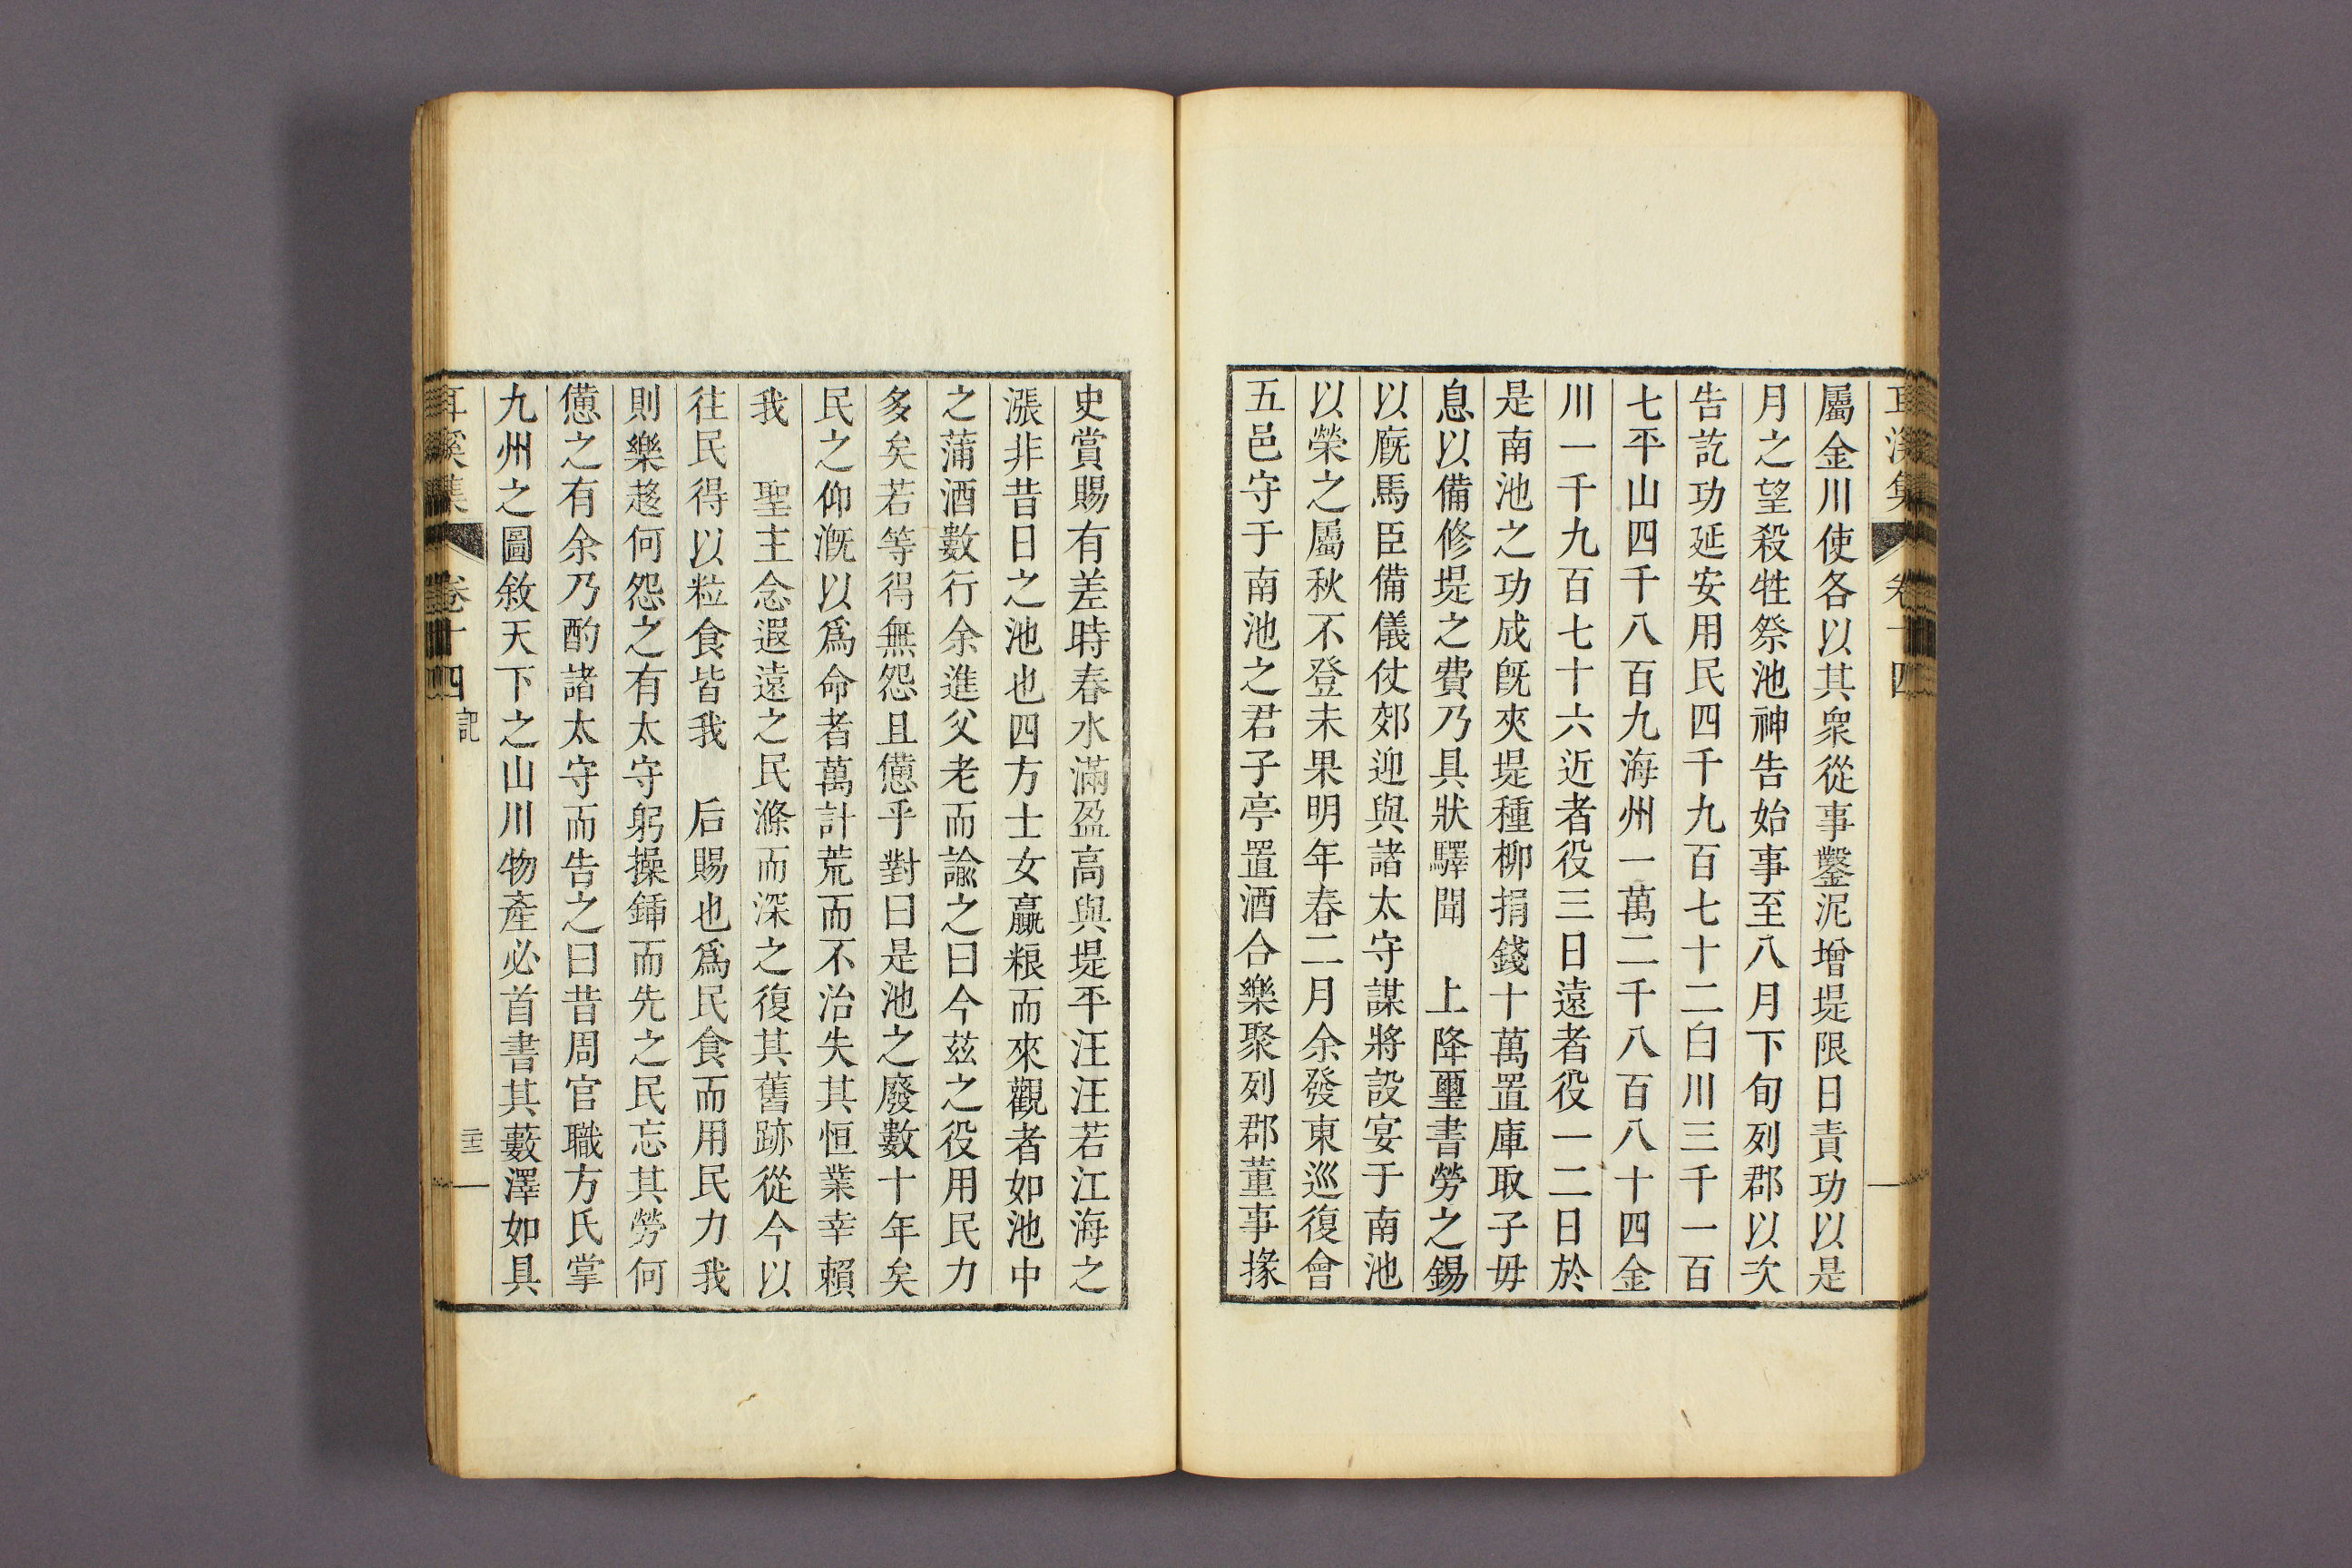 耳溪集 卷十四
屬金川使各以其衆從事鑿泥增堤限日責功以是
月之望殺牲祭池神告始事至八月下旬列郡以次
告訖功延安用民四千九百七十二白川三千一百
七平山四千八百九海州一萬二千八百八十四金
川一千九百七十六近者役三日遠者役一二日於
是南池之功成旣夾堤種柳捐錢十萬置庫取子毋
息以備修堤之費乃具狀驛聞 上降璽書勞之錫
以廐馬臣備儀仗郊迎與諸太守謀將設宴于南池
以榮之屬秋不登未果明年春二月余發東巡復會
五邑守于南池之君子亭置酒合樂聚列郡董事掾
史賞賜有差時春水滿盈高與堤平汪汪若江海之
漲非昔日之池也四方士女贏粮而來觀者如池中
之蒲酒數行余進父老而諭之曰今茲之役用民力
多矣若等得無怨且憊乎對曰是池之廢數十年矣
民之仰漑以爲命者萬計荒而不治失其恒業幸賴
我 聖主念遐遠之民滌而深之復其舊跡從今以
往民得以粒食皆我 后賜也爲民食而用民力我
則樂趍何怨之有太守躬操鍤而先之民忘其勞何
憊之有余乃酌諸太守而告之曰昔周官職方氏掌
九州之圖敘天下之山川物產必首書其藪澤如具
耳溪集 卷十四 記 二十三